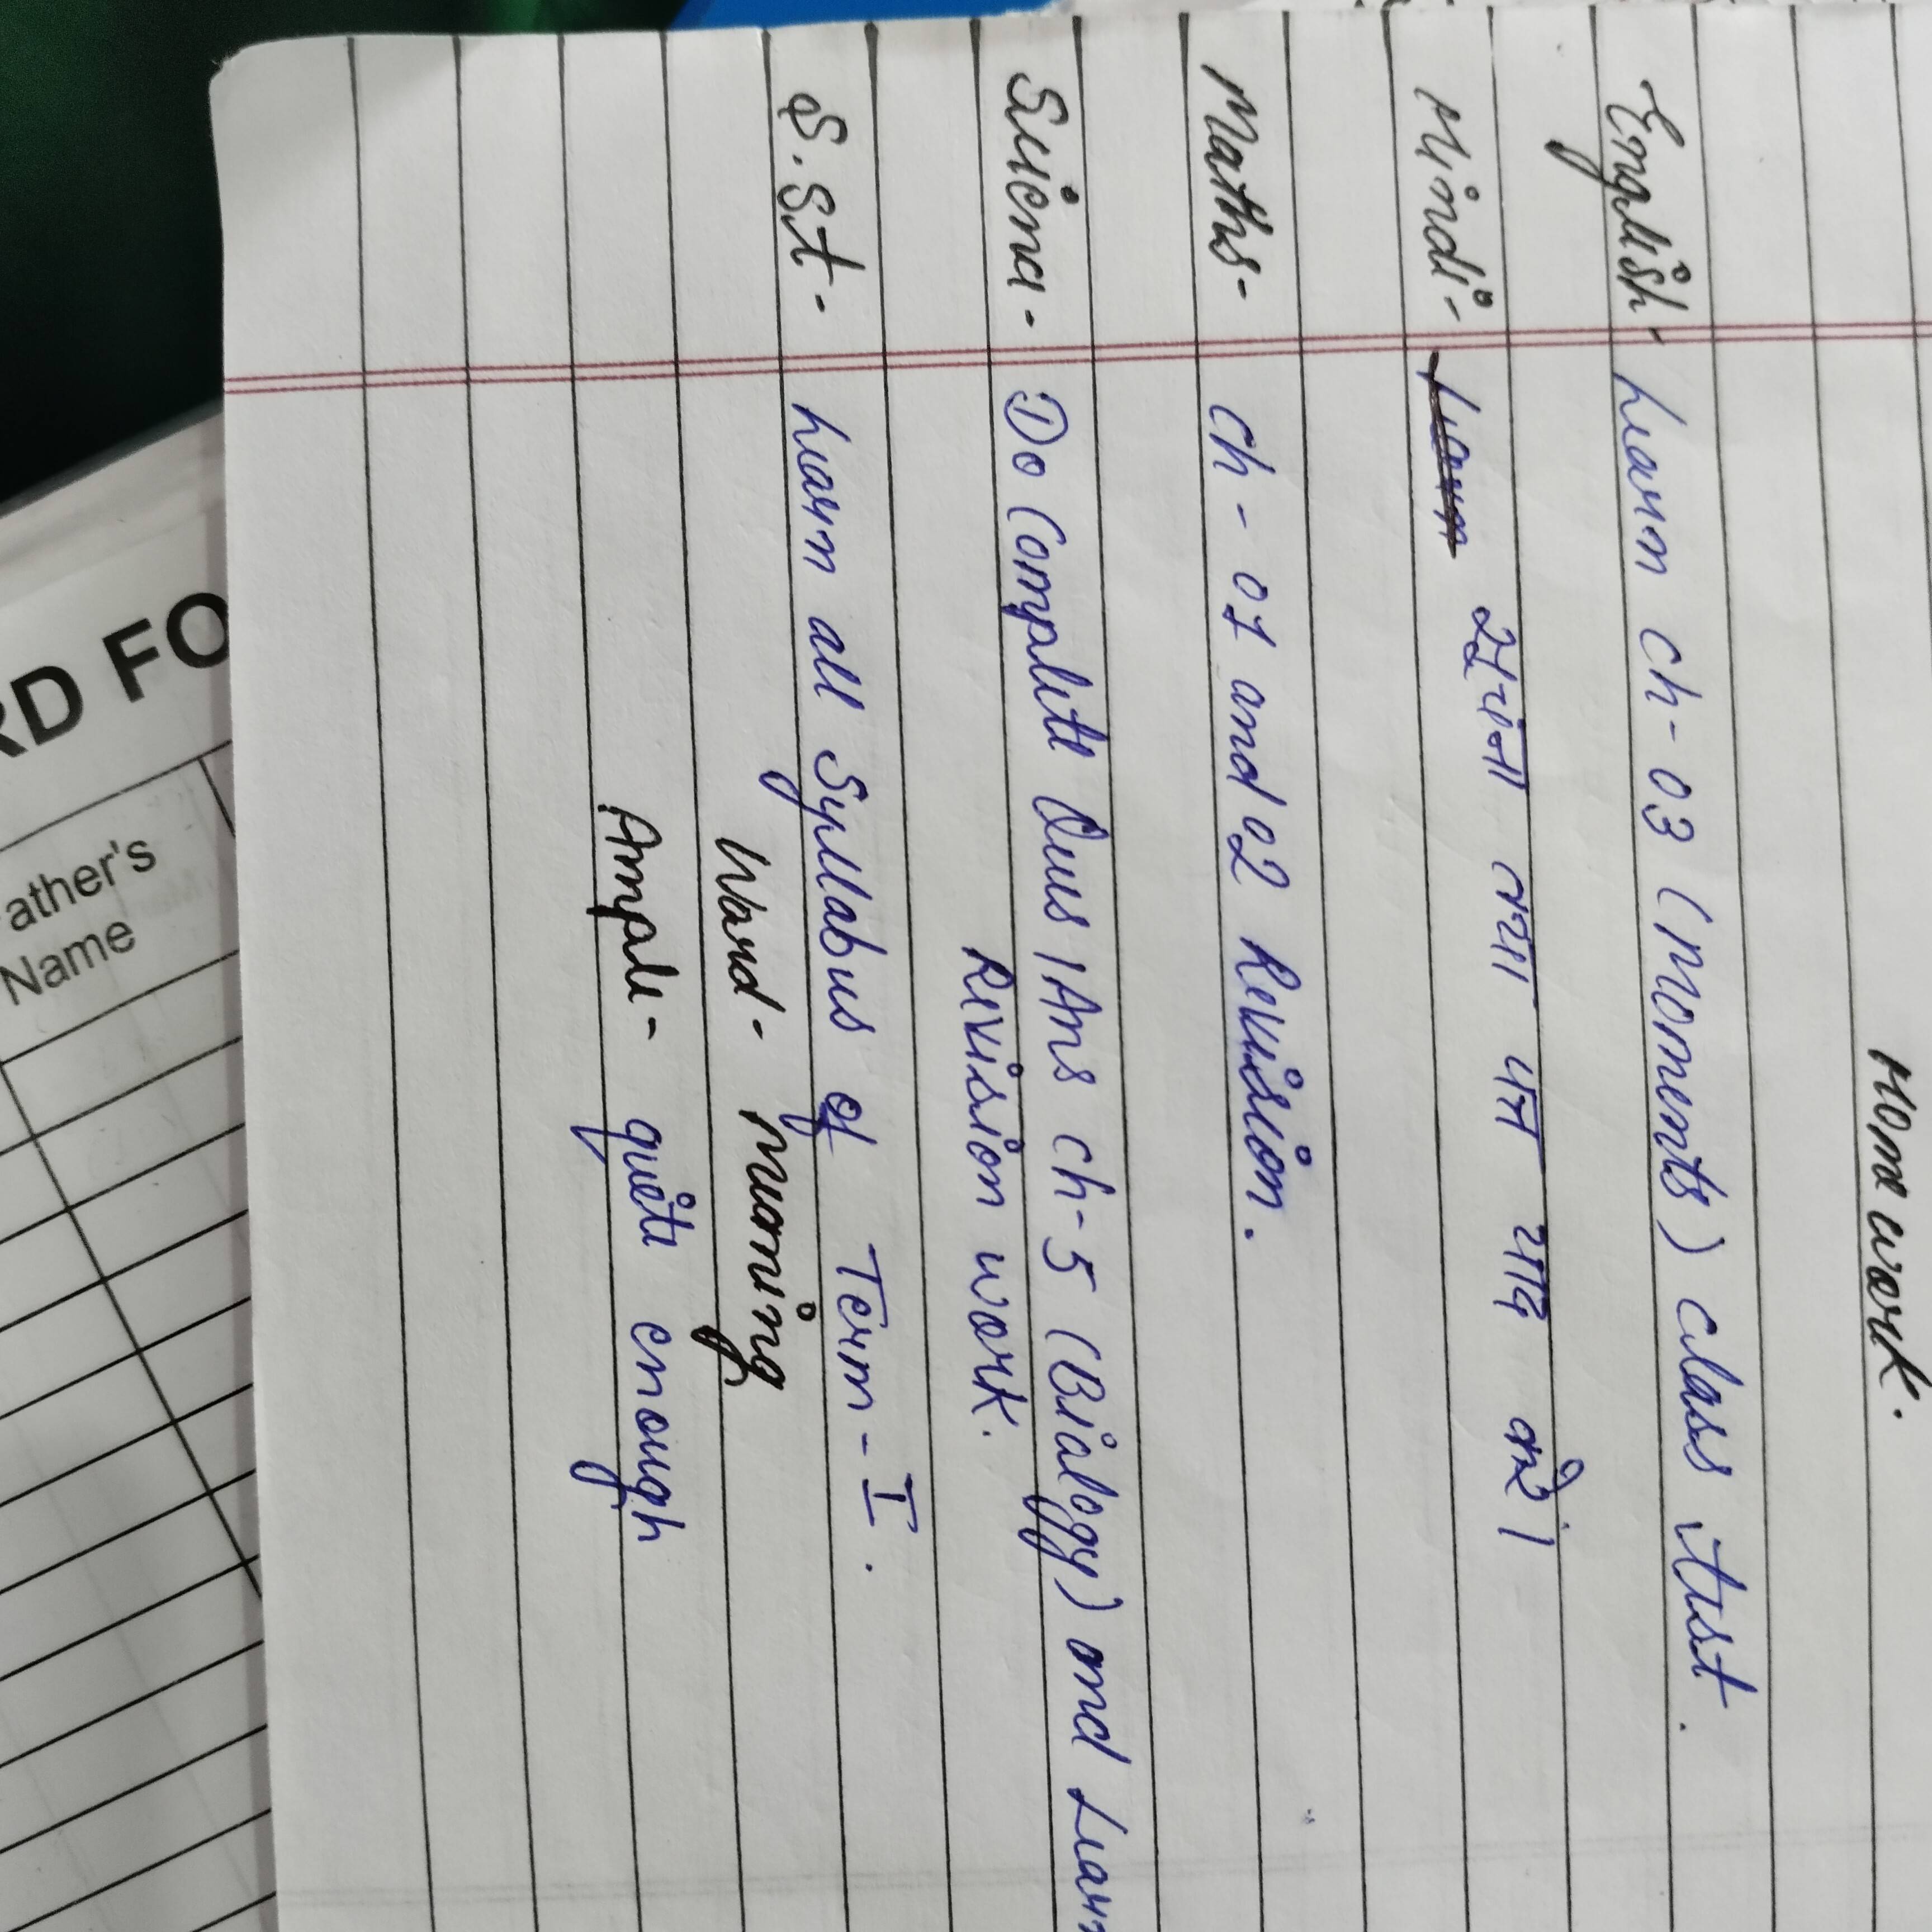 Home work.
English- Learn ch-03 (Moments) class test.
Hindi- Learn सूचना तथा पत्र याद करे।
Maths- Ch-01 and 02 Revision.
Science- Do Complete Ques/Ans ch-5 (Biology) and Learn
Revision work.
S.St- Learn all Syllabus of Term-I.
Word- meaning
Ample- quite enough
RD FO
ather's
Name